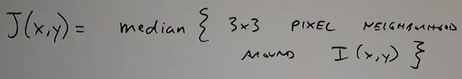 J(x,y) = median { 3x3 PIXEL NEIGHBOURHOOD
AROUND I(x,y) }